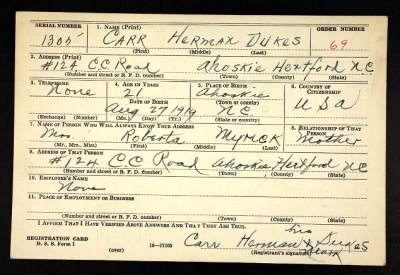 SERIAL NUMBER 1. NAME (Print) ORDER NUMBER
1305 CARR HERMAN DUKES 69
(First) (Middle) (Last)
2. ADDRESS (Print)
#124 C.C. Road Ahoskie Hertford N.C.
(Number and street or R. F. D. number) (Town) (County) (State)
3. TELEPHONE 4. AGE IN YEARS 5. PLACE OF BIRTH 6. COUNTRY OF CITIZENSHIP
None 21 Ahoskie
DATE OF BIRTH (Town or county)
Aug 27 1919 N.C. USA
(Exchange) (Number) (Mo.) (Day) (Yr.) (State or country)
7. NAME OF PERSON WHO WILL ALWAYS KNOW YOUR ADDRESS 8. RELATIONSHIP OF THAT PERSON
Mrs. Roberta Myrick Mother
(Mr., Mrs., Miss) (First) (Middle) (Last)
9. ADDRESS OF THAT PERSON
#124 C.C. Road Ahoskie Hertford NC
(Number and street or R. F. D. number) (Town) (County) (State)
10. EMPLOYER'S NAME
None
11. PLACE OF EMPLOYMENT OR BUSINESS
(Number and street or R. F. D. number) (Town) (County) (State)
I AFFIRM THAT I HAVE VERIFIED ABOVE ANSWERS AND THAT THEY ARE TRUE.
his
REGISTRATION CARD
D. S. S. Form 1 (over) 16—17105 Carr Herman X Dukes
mark
(Registrant's signature)